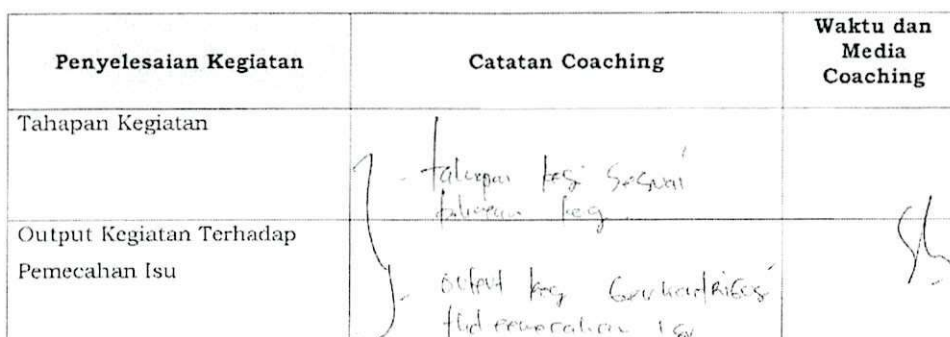 Penyelesaian Kegiatan
Catatan Coaching
Waktu dan
Media
Coaching
Tahapan Kegiatan
- tahapan keg sesuai
keg
Output Kegiatan Terhadap
Pemecahan Isu
- output keg
pemecahan isu